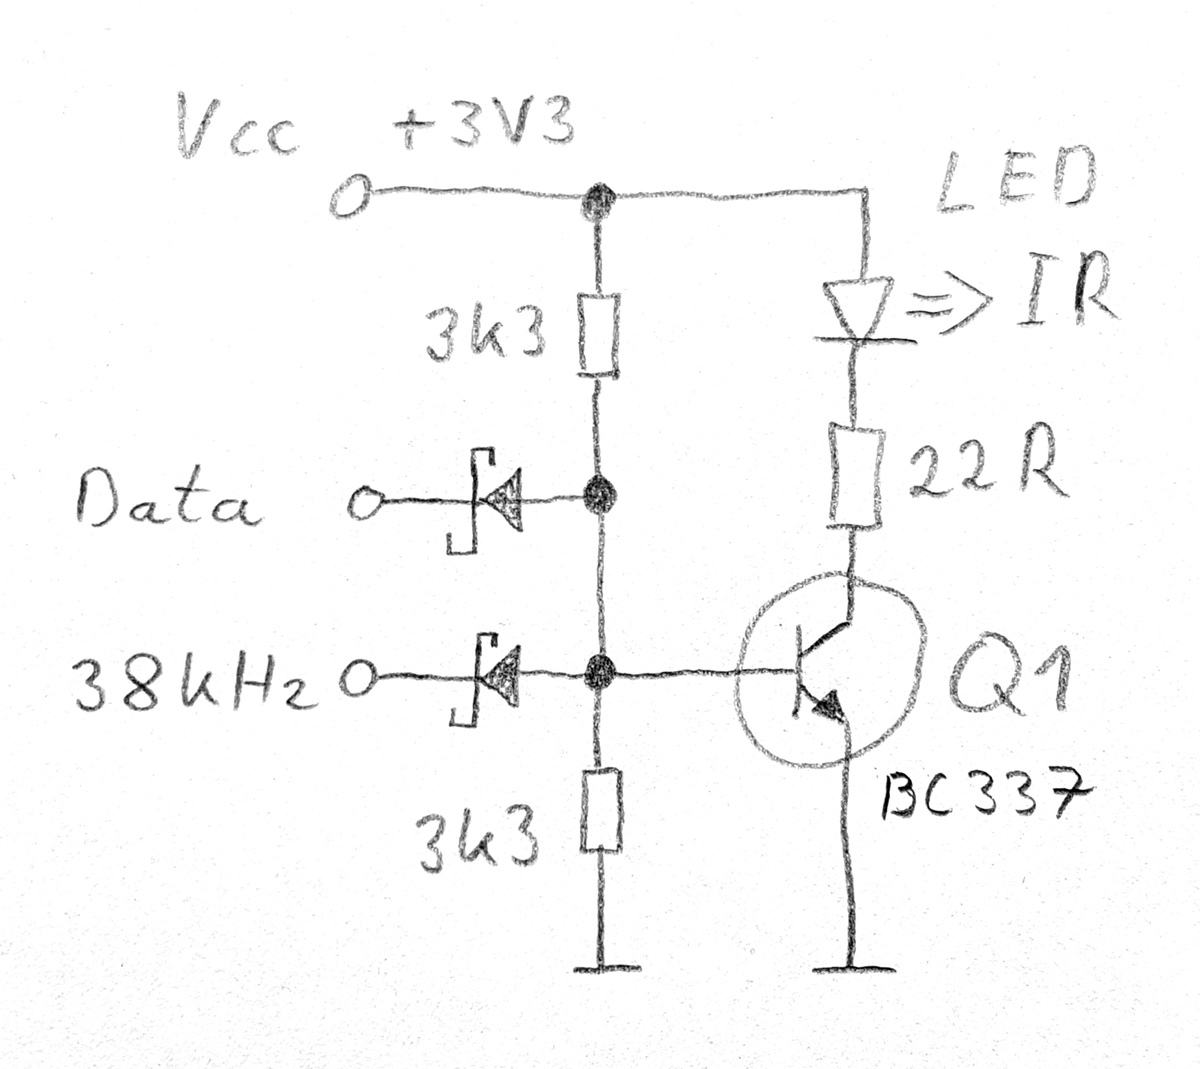 Vcc +3V3
LED
IR
3k3
22R
Data
38kHz
Q1
BC337
3k3